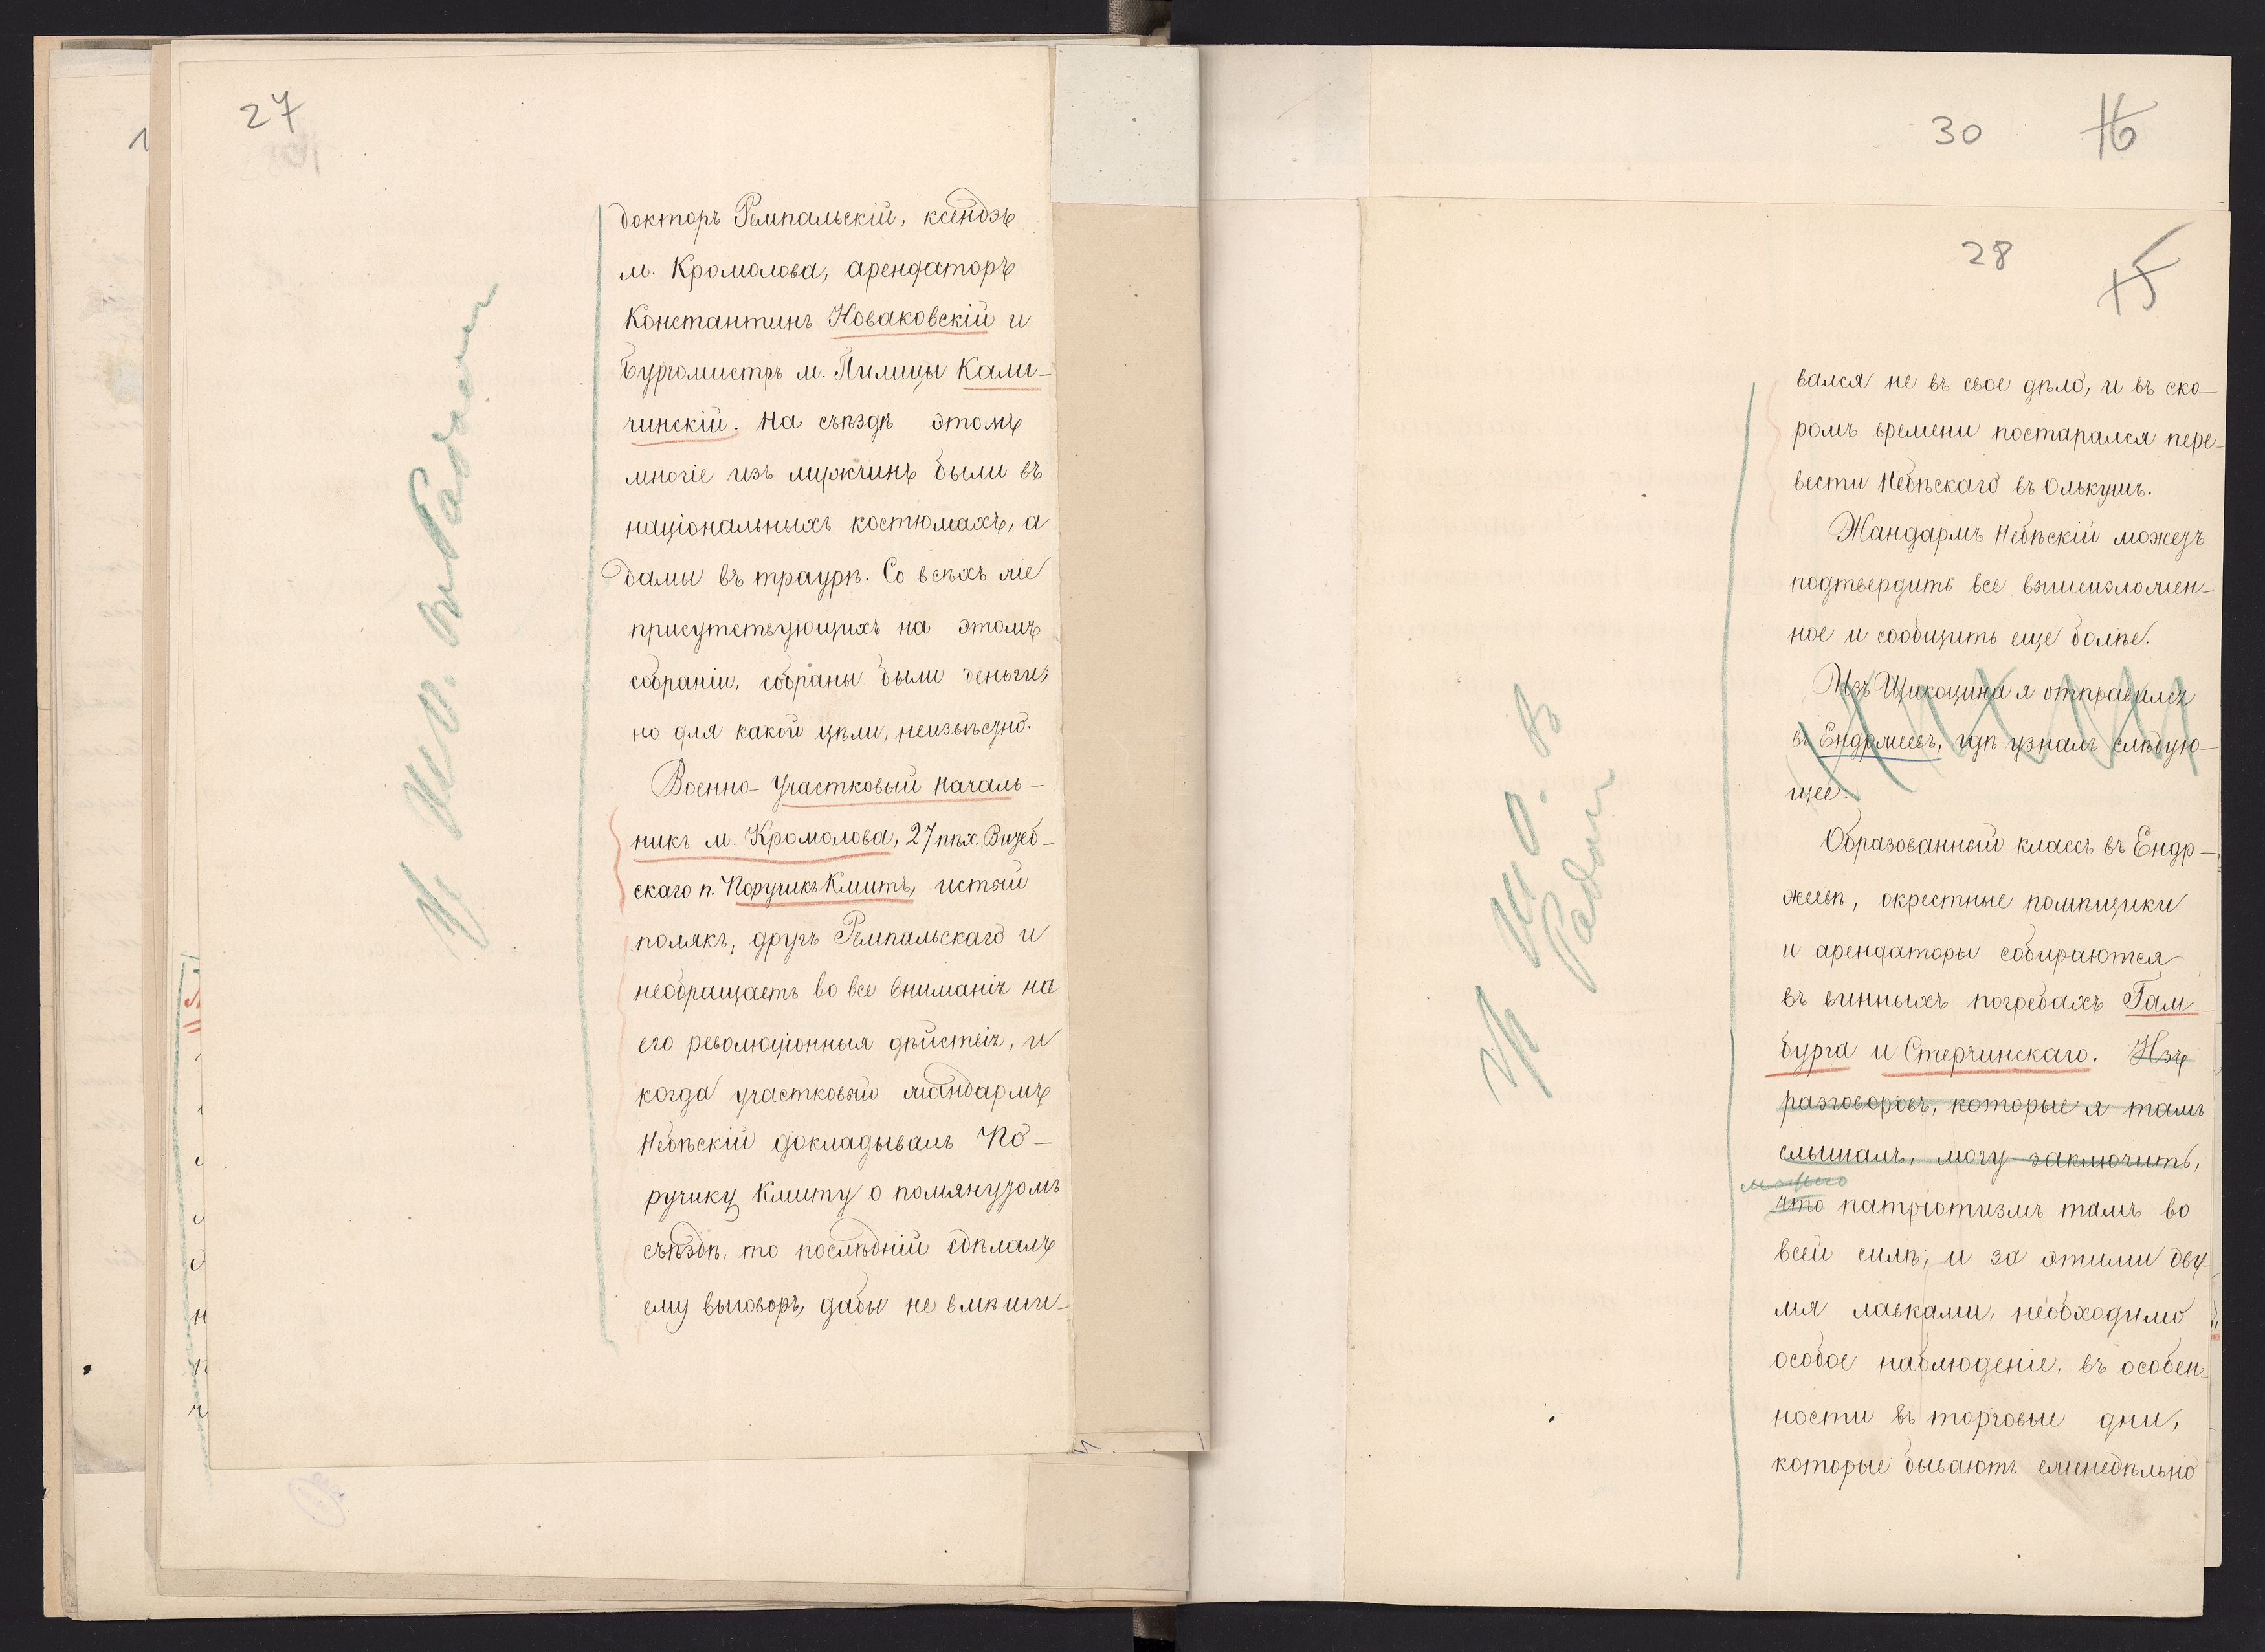 27
докторъ Ремпальскій, ксендзъ
м. Кромолова, арендаторъ
Константинъ Новаковскій и
бургомистръ м. Пилицы Кали-
чинскій. На съѣздѣ этомъ
многіе изъ мужчинъ были въ
національныхъ костюмахъ, а
дамы въ траурѣ. Со всѣхъ же
присутствующихъ на этомъ
собраніи, собраны были деньги,
но для какой цѣли, неизвѣстно.
Военно-Участковый Началь-
никъ м. Кромолова, 27 пѣх. Витеб-
скаго п. Поручикъ Кмитъ, истый
полякъ, другъ Ремпальскаго и
необращаетъ во все вниманія на
его революціонныя дѣйствія, и
когда участковый жандармъ
Небѣскій докладывалъ По-
ручику Кмиту о помянутомъ
съѣздѣ, то послѣдній сдѣлалъ
ему выговоръ, дабы не вмѣши-
30 16
28 15
вался не въ свое дѣло, и въ ско-
ромъ времени постарался пере-
вести Небѣскаго въ Олькушъ.
Жандармъ Небѣскій можетъ
подтвердить все вышеизложен-
ное и сообщить еще болѣе.
Изъ Щикоцина я отправился
въ Ендржеевъ, гдѣ узналъ слѣдую-
щее:
Образованный классъ въ Ендр-
жеевѣ, окрестные помѣщики
и арендаторы собираются
въ винныхъ погребахъ Гам-
бурга и Стерчинскаго. Изъ
разговоровъ, которые я тамъ
слышалъ, могу заключить,
что патріотизмъ тамъ во
всей силѣ, и за этими дву-
мя лавками, необходимо
особое наблюденіе, въ особен-
ности въ торговые дни,
которые бываютъ еженедѣльно